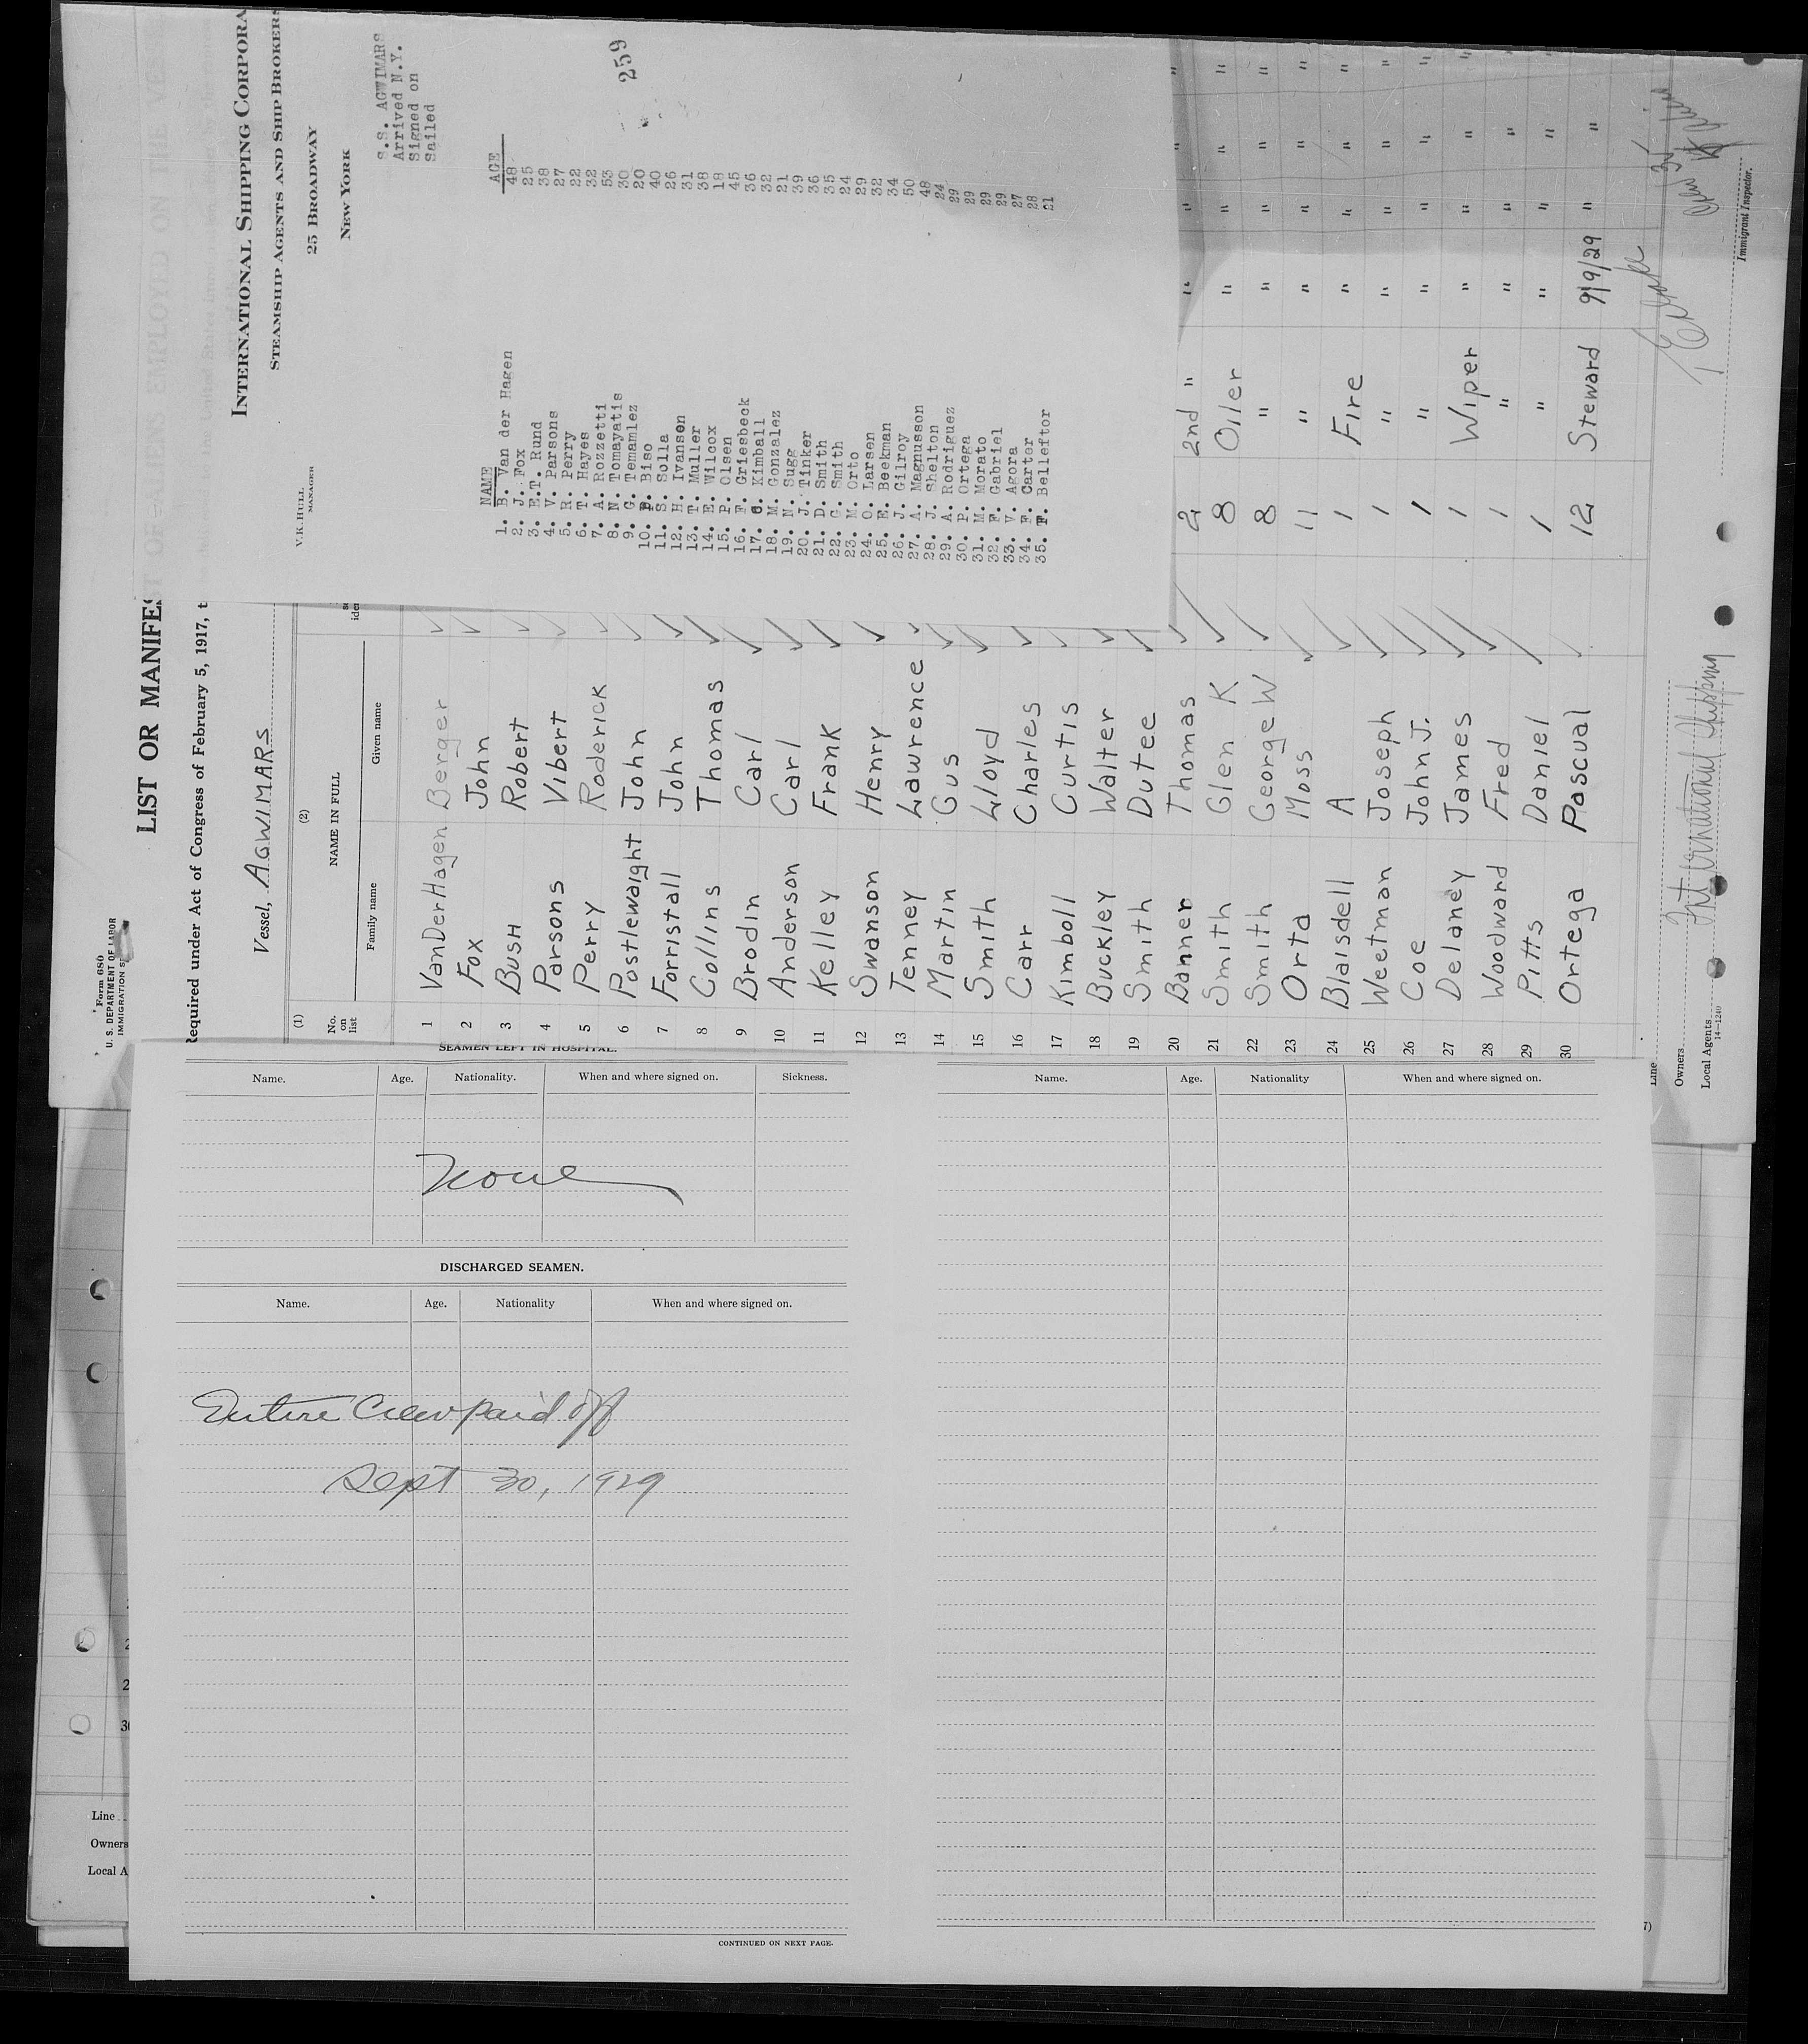 INTERNATIONAL SHIPPING CORPORA
STEAMSHIP AGENTS AND SHIP BROKERS
25 BROADWAY
NEW YORK
V.K. HULL
MANAGER
S.S. AGWIMARS
Arrived N.Y.
Signed on
Sailed
259
NAME AGE
1. B. Van der Hagen 48
2. J. Fox 25
3. E.T. Rund 38
4. V. Parsons 27
5. R. Perry 22
6. T. Hayes 32
7. A. Rozzetti 53
8. N. Tomayatis 30
9. G. Temamlez 20
10. B. Biso 40
11. S. Solla 26
12. H. Ivansen 31
13. T. Muller 38
14. E. Wilcox 18
15. P. Olsen 45
16. F. Griesbeck 36
17. C. Kimball 32
18. M. Gonzalez 21
19. N. Sugg 39
20. J. Tinker 36
21. D. Smith 35
22. C. Smith 24
23. M. Orto 29
24. O. Larsen 32
25. E. Beekman 34
26. J. Gilroy 50
27. A. Magnusson 48
28. J. Shelton 24
29. A. Rodriguez 29
30. P. Ortega 29
31. M. Morato 29
32. F. Gabriel 29
33. V. Agora 27
34. F. Carter 28
35. F. Belleftor 21
Form 680
U. S. DEPARTMENT OF LABOR
IMMIGRATION
LIST OR MANIFES
Required under Act of Congress of February 5, 1917, t
Vessel, AGWIMARS
(1) (2)
No. on list
NAME IN FULL
Family name Given name
1 VanDerHagen Berger
2 Fox John
3 Bush Robert
4 Parsons Vibert
5 Perry Roderick
6 Postlewaight John
7 Forristall John
8 Collins Thomas
9 Brodin Carl
10 Anderson Carl
11 Kelley Frank
12 Swanson Henry
13 Tenney Lawrence
14 Martin Gus
15 Smith Lloyd
16 Carr Charles
17 Kimboll Curtis
18 Buckley Walter
19 Smith Dutee
20 Banner Thomas 2 2nd " " " " "
21 Smith Glen K 8 Oiler " " " "
22 Smith George W 8 " " " " "
23 Orta Moss 11 " " " " "
24 Blaisdell A 1 Fire " " " "
25 Weetman Joseph 1 " " " " "
26 Coe John J. 1 " " " " "
27 Delaney James 1 Wiper " " " "
28 Woodward Fred 1 " " " "
29 Pitts Daniel 1 " " " "
30 Ortega Pascual 12 Steward 9/9/29 " "
Line
Owners
Local Agents International Shipping
14—1240
Immigrant Inspector.
SEAMEN LEFT IN HOSPITAL.
Name. Age. Nationality. When and where signed on. Sickness.
None
DISCHARGED SEAMEN.
Name. Age. Nationality When and where signed on.
Entire Crew paid off
Sept 30, 1929
CONTINUED ON NEXT PAGE.
Name. Age. Nationality When and where signed on.
Line
Owners
Local A